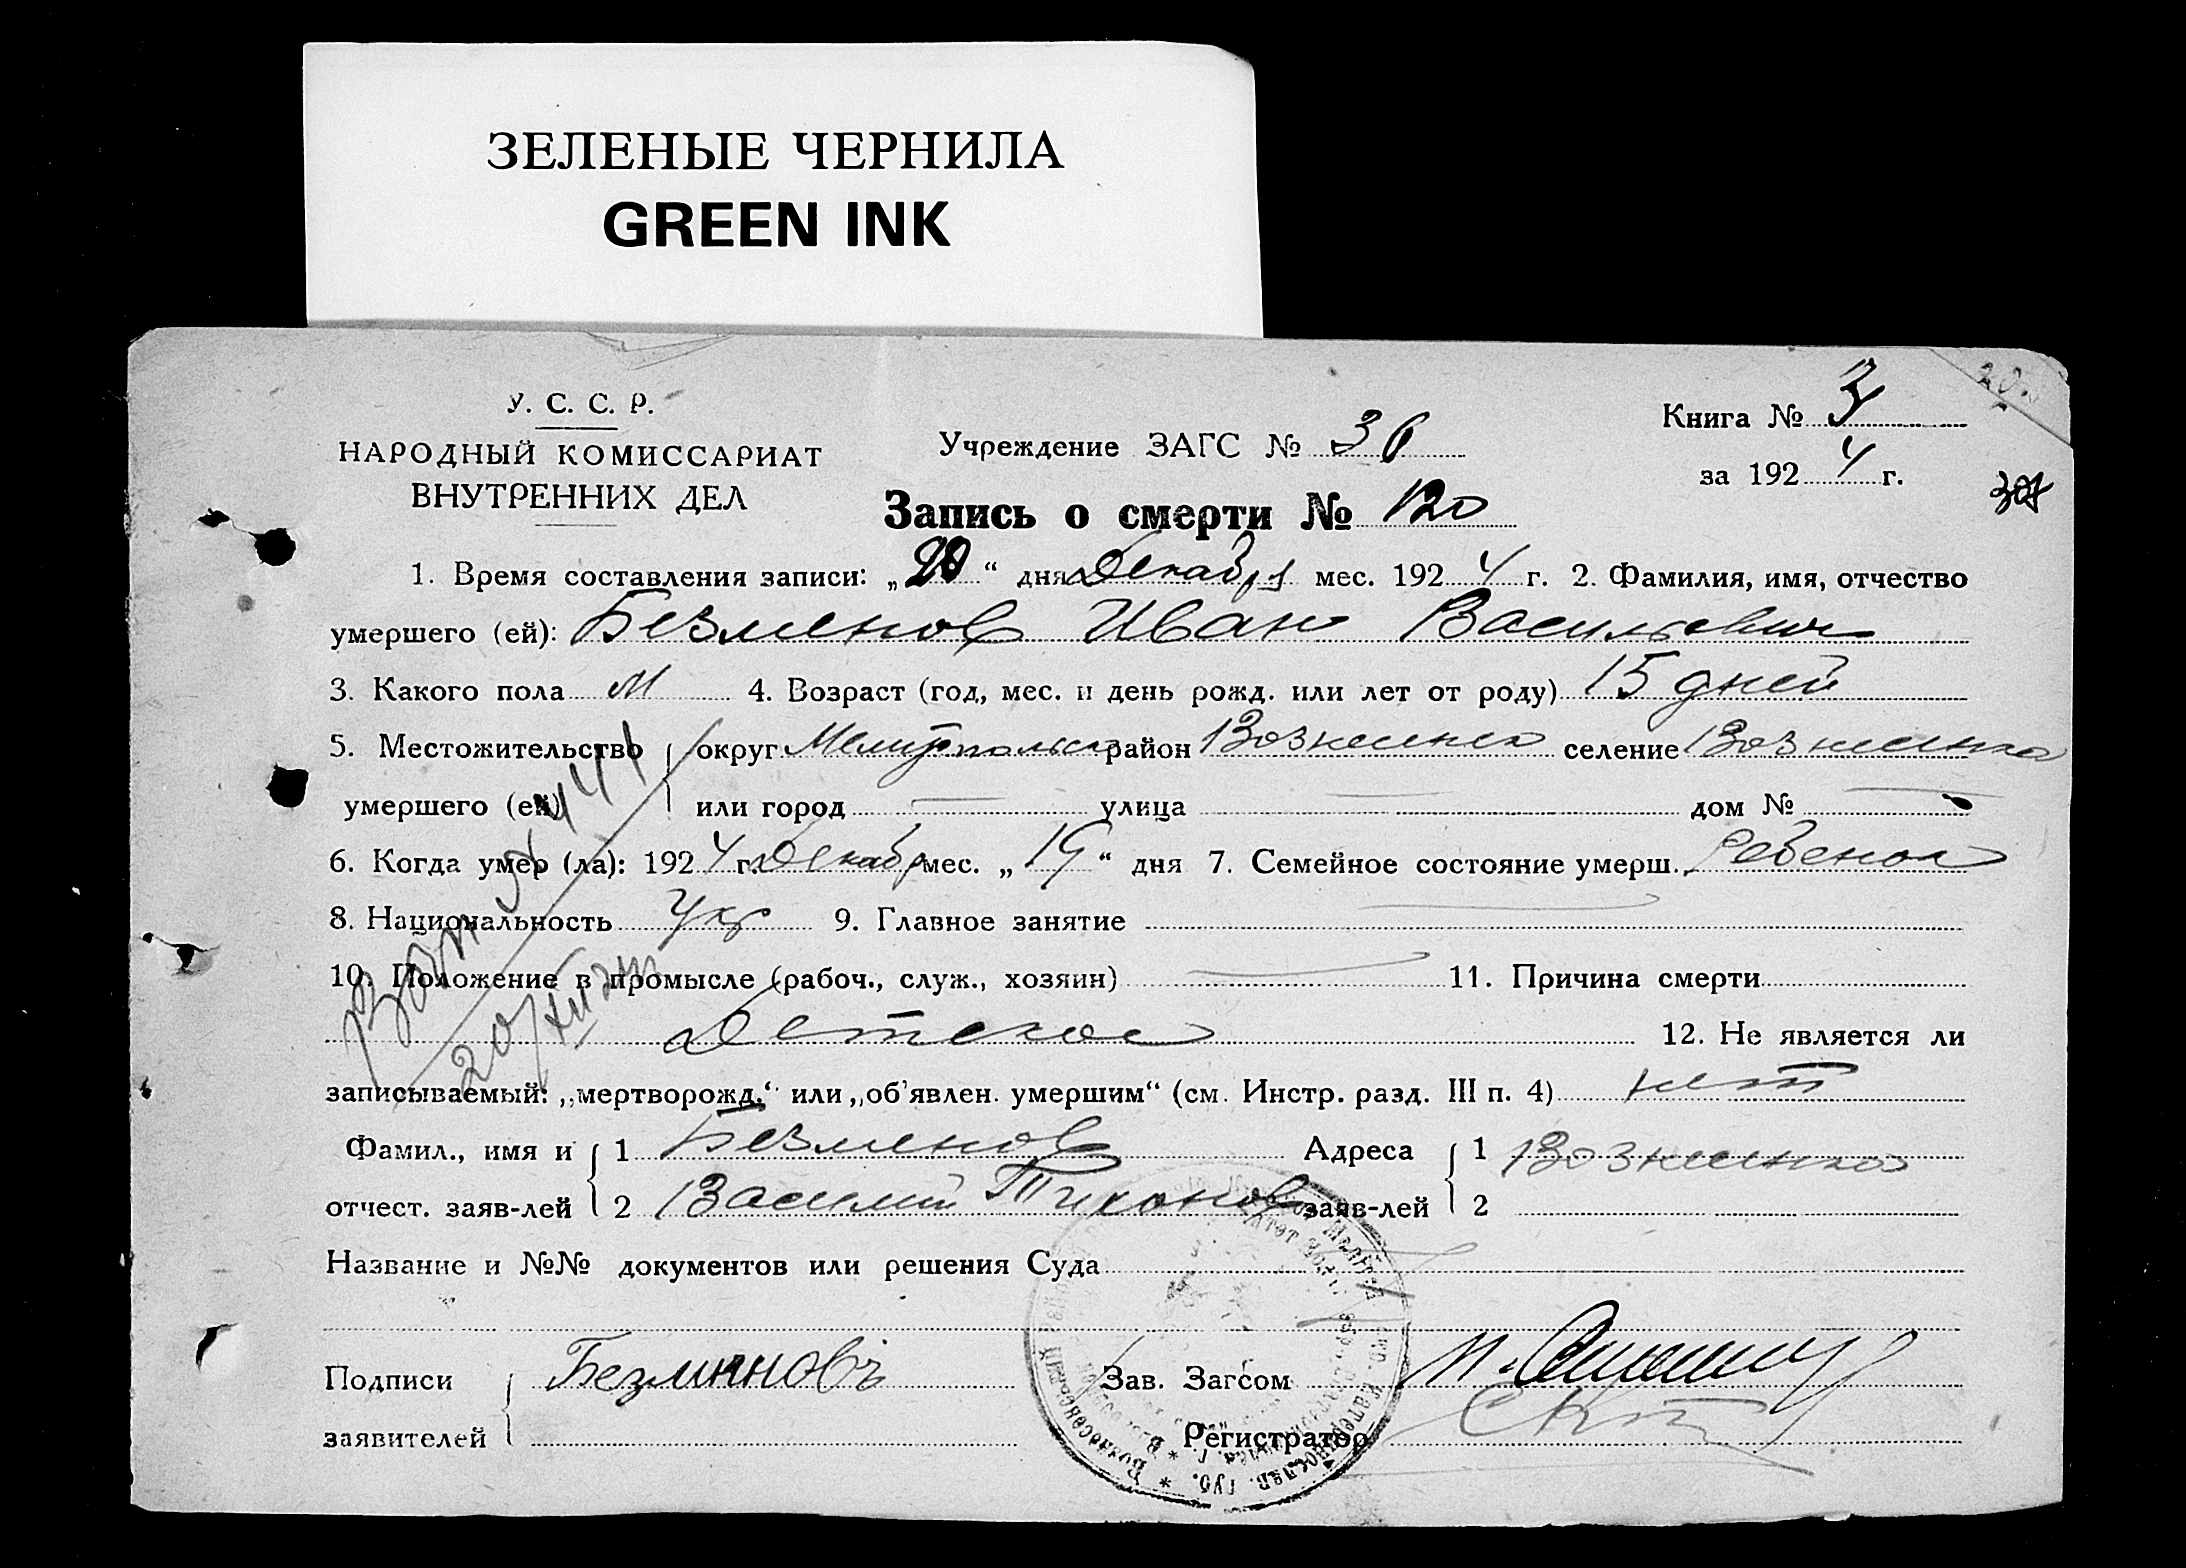 ЗЕЛЕНЫЕ ЧЕРНИЛА
GREEN INK
У. С. С. Р.
НАРОДНЫЙ КОМИССАРИАТ
ВНУТРЕННИХ ДЕЛ
Учреждение ЗАГС № 36
Книга № 3
за 1924 г.
Запись о смерти № 120
1. Время составления записи: „20“ дня Декабря мес. 1924 г. 2. Фамилия, имя, отчество
умершего (ей): Безменов Иван Васильевич
3. Какого пола М 4. Возраст (год, мес. и день рожд. или лет от роду) 15 дней
5. Местожительство округ Мелитопольск район Вознесенка селение Вознесенка
умершего (ей) или город — улица — дом № —
6. Когда умер (ла): 1924 г. Декабр мес. „19“ дня 7. Семейное состояние умерш. Ребенок
8. Национальность Укр 9. Главное занятие —
10. Положение в промысле (рабоч., служ., хозяин) — 11. Причина смерти
Детское 12. Не является ли
записываемый: „мертворожд.“ или „об'явлен. умершим“ (см. Инстр. разд. III п. 4) нет
Фамил., имя и 1 Безменов Адреса 1 Вознесенка
отчест. заяв-лей 2 Василий Тихонов заяв-лей 2
Название и №№ документов или решения Суда
Подписи Безминновъ Зав. Загсом
заявителей Регистратор